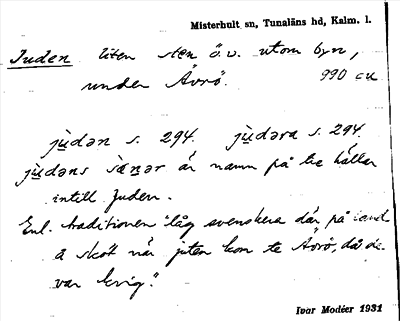 Misterhult sn, Tunaläns hd, Kalm. l.
Juden liten sten ö.v. utom byn,
under Ävrö. 990 cu
jùdən s. 294. jùdəra s. 294
jùdəns sænər är namn på tre hällar
intill Juden.
Enl. traditionen "låg svenskera där på land
å sköt när juten kom te Ävrö, då de
var krig."
Ivar Modéer 1931